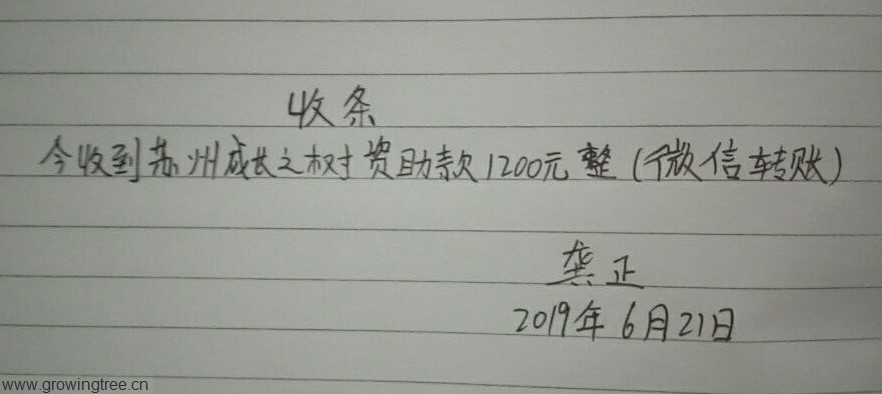 收条
今收到苏州成长之树资助款1200元整(微信转账)
龚正
2019年6月21日
www.growingtree.cn